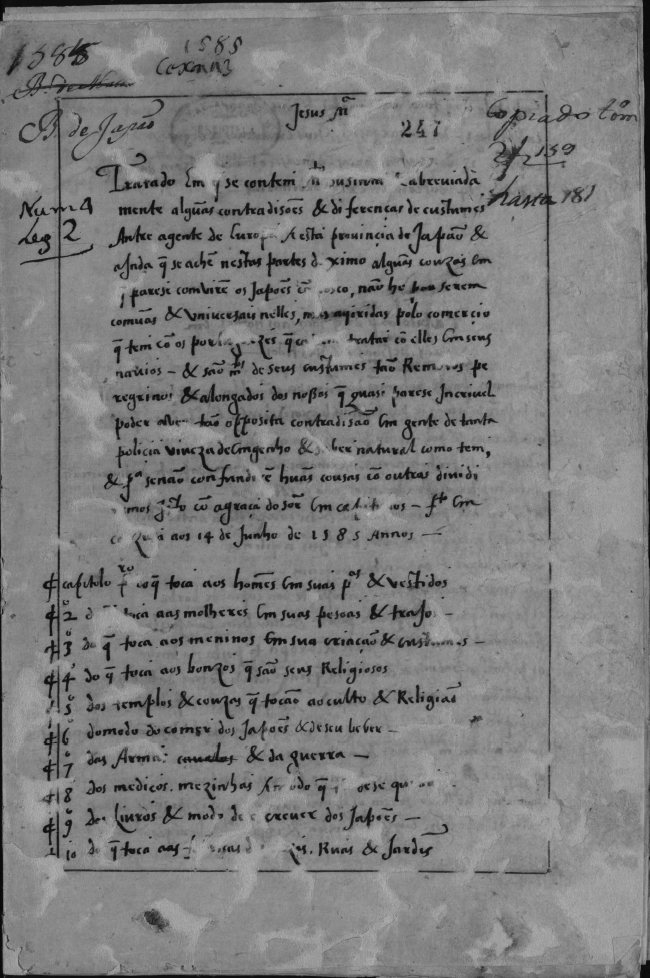 1585
1585
B. de Japão
Jesus Mª
247
Copiado tom
2 f 159
hasta 181
Num 4
Leg 2
Tratado Em q̃ se contem susinta & abreviada
mente alguãs contradisões & diferenças de custumes
Antre agente de Europa & esta provincia de Japão &
aInda q̃ se achẽ nestas partes do ximo alguãs couzas Em
q̃ parese comvirẽ os Japões cõ nosco, não he por serem
comuãs & universais nelles, mas aqiridas pólo comercio
q̃ tem cõ os portuguezes q̃ tratar cõ elles Em seus
navios – & são de seus custumes tão Remotos pe
regrinos & alongados dos noßos q̃ quasi parese Increivel
poder aver tão opposita contradisão Em gente de tanta
policia viveza de Emgenho & saber natural como tem,
& pª se não confundirẽ huãs cousas cõ outras dividi
remos isto cõ a graça do sõr Em capitolos – fto Em
aos 14 de Junho de 1585 Annos –
capitolo pro do q̃ toca aos homẽs Em suas pas & vestidos
2º do q̃ toca aas molheres Em suas pesoas & trajos –
3º do q̃ toca aos meninos Em sua criação & custumes –
4º do q̃ toca aos bonzos q̃ são seus Religiosos
5º dos templos & couzas q̃ tocão ao culto & Religião
6º do modo do comer dos Japões & de seu beber –
7º das Armas cavalos & da guerra –
8 dos medicos. mezinhas & modo
9º dos livros & modo de escrever dos Japões –
10 do q̃ toca aas Ruas & Jardĩs